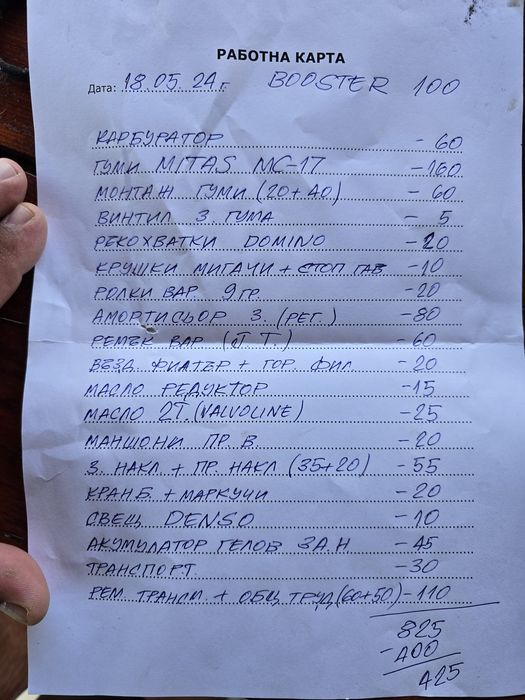 РАБОТНА КАРТА
Дата: 18.05.24 г. BOOSTER 100
КАРБУРАТОР - 60
ГУМИ MITAS MC-17 - 160
МОНТАЖ ГУМИ (20+40) - 60
ВИНТИЛ З. ГУМА - 5
РЕКОХВАТКИ DOMINO - 20
КРУШКИ МИГАЧИ + СТОП ГАБ - 10
РОЛКИ ВАР. 9 ГР. - 20
АМОРТИСЬОР З. (РЕГ.) - 80
РЕМЪК ВАР. - 60
ВЪЗД. ФИЛТЪР + ГОР. ФИЛ. - 20
МАСЛО РЕДУКТОР - 15
МАСЛО 2Т. (VALVOLINE) - 25
МАНШОНИ ПР. В. - 20
З. НАКЛ + ПР. НАКЛ (35+20) - 55
КРАН Б. + МАРКУЧИ - 20
СВЕЩ DENSO - 10
АКУМУЛАТОР ГЕЛОВ 3 А.Н - 45
ТРАНСПОРТ - 30
РЕМ. ТРАНСМ. + ОБЩ ТРУД (60+50) - 110
825
- 400
425